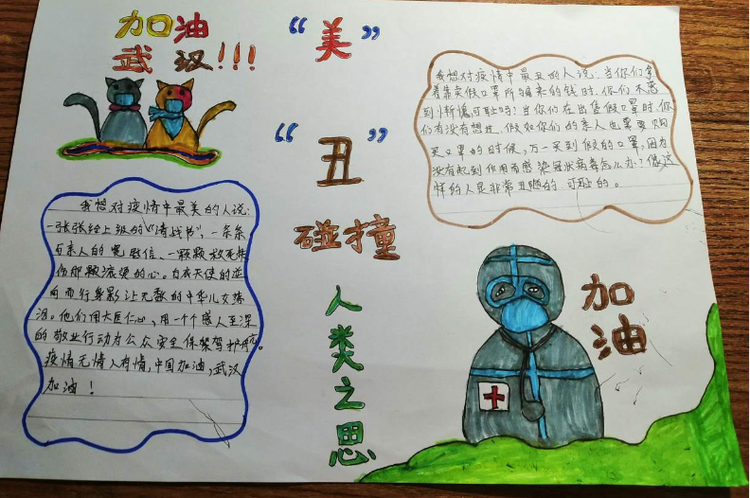 加油
武汉!!!
“美”
“丑”
碰撞
人类之思
我想对疫情中最美的人说:
一张张给上级的“请战书”、一条条
亲人的 短信、一颗颗救死扶
伤那颗滚烫的心。白衣天使的逆
而行身影让无数的中华儿女落
泪。他们用大医仁心,用一个个感人至深
的敬业行动为公众安全保驾护航。
疫情无情人有情,中国加油,武汉
加油!
我想对疫情中最丑的人说:当你们拿
着靠卖假口罩所 来的钱时,你们不感
到惭愧可耻吗?当你们在出售假口罩时,你
们有没有想过,假如你们的亲人也需要购
买口罩的时候,万一买到假的口罩,因为
没有起到作用而感染冠状病毒怎么办?像这
样的人是非常丑陋的、可耻的。
加
油